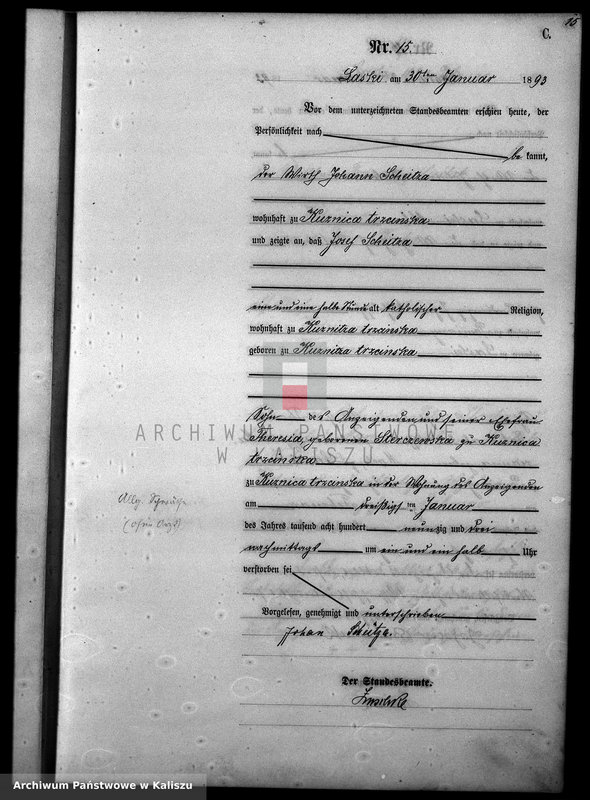 15
C.
Nr. 15.
Laski am 30ten Januar 1893
Vor dem unterzeichneten Standesbeamten erschien heute, der
Persönlichkeit nach
be kannt,
der Wirth Johann Scheitza
wohnhaft zu Kuznica trzcińska
und zeigte an, daß Josef Scheitza
eine und eine halbe Stunde alt katholischer Religion,
wohnhaft zu Kuznitza trzcinska
geboren zu Kuznitza trzcinska
Sohn des Anzeigenden und seiner Ehefrau
Theresia, geborenen Sterczewska zu Kuznica
trzcinska
zu Kuznica trzcinska in der Wohnung des Anzeigenden
am dreißigsten Januar
des Jahres tausend acht hundert neunzig und drei
nachmittags um ein und ein halb Uhr
verstorben sei
Vorgelesen, genehmigt und unterschrieben
Johan Scheitza.
Der Standesbeamte.
Allg. Schwäche
ARCHIWUM PAŃSTWOWE
W KALISZU
Archiwum Państwowe w Kaliszu